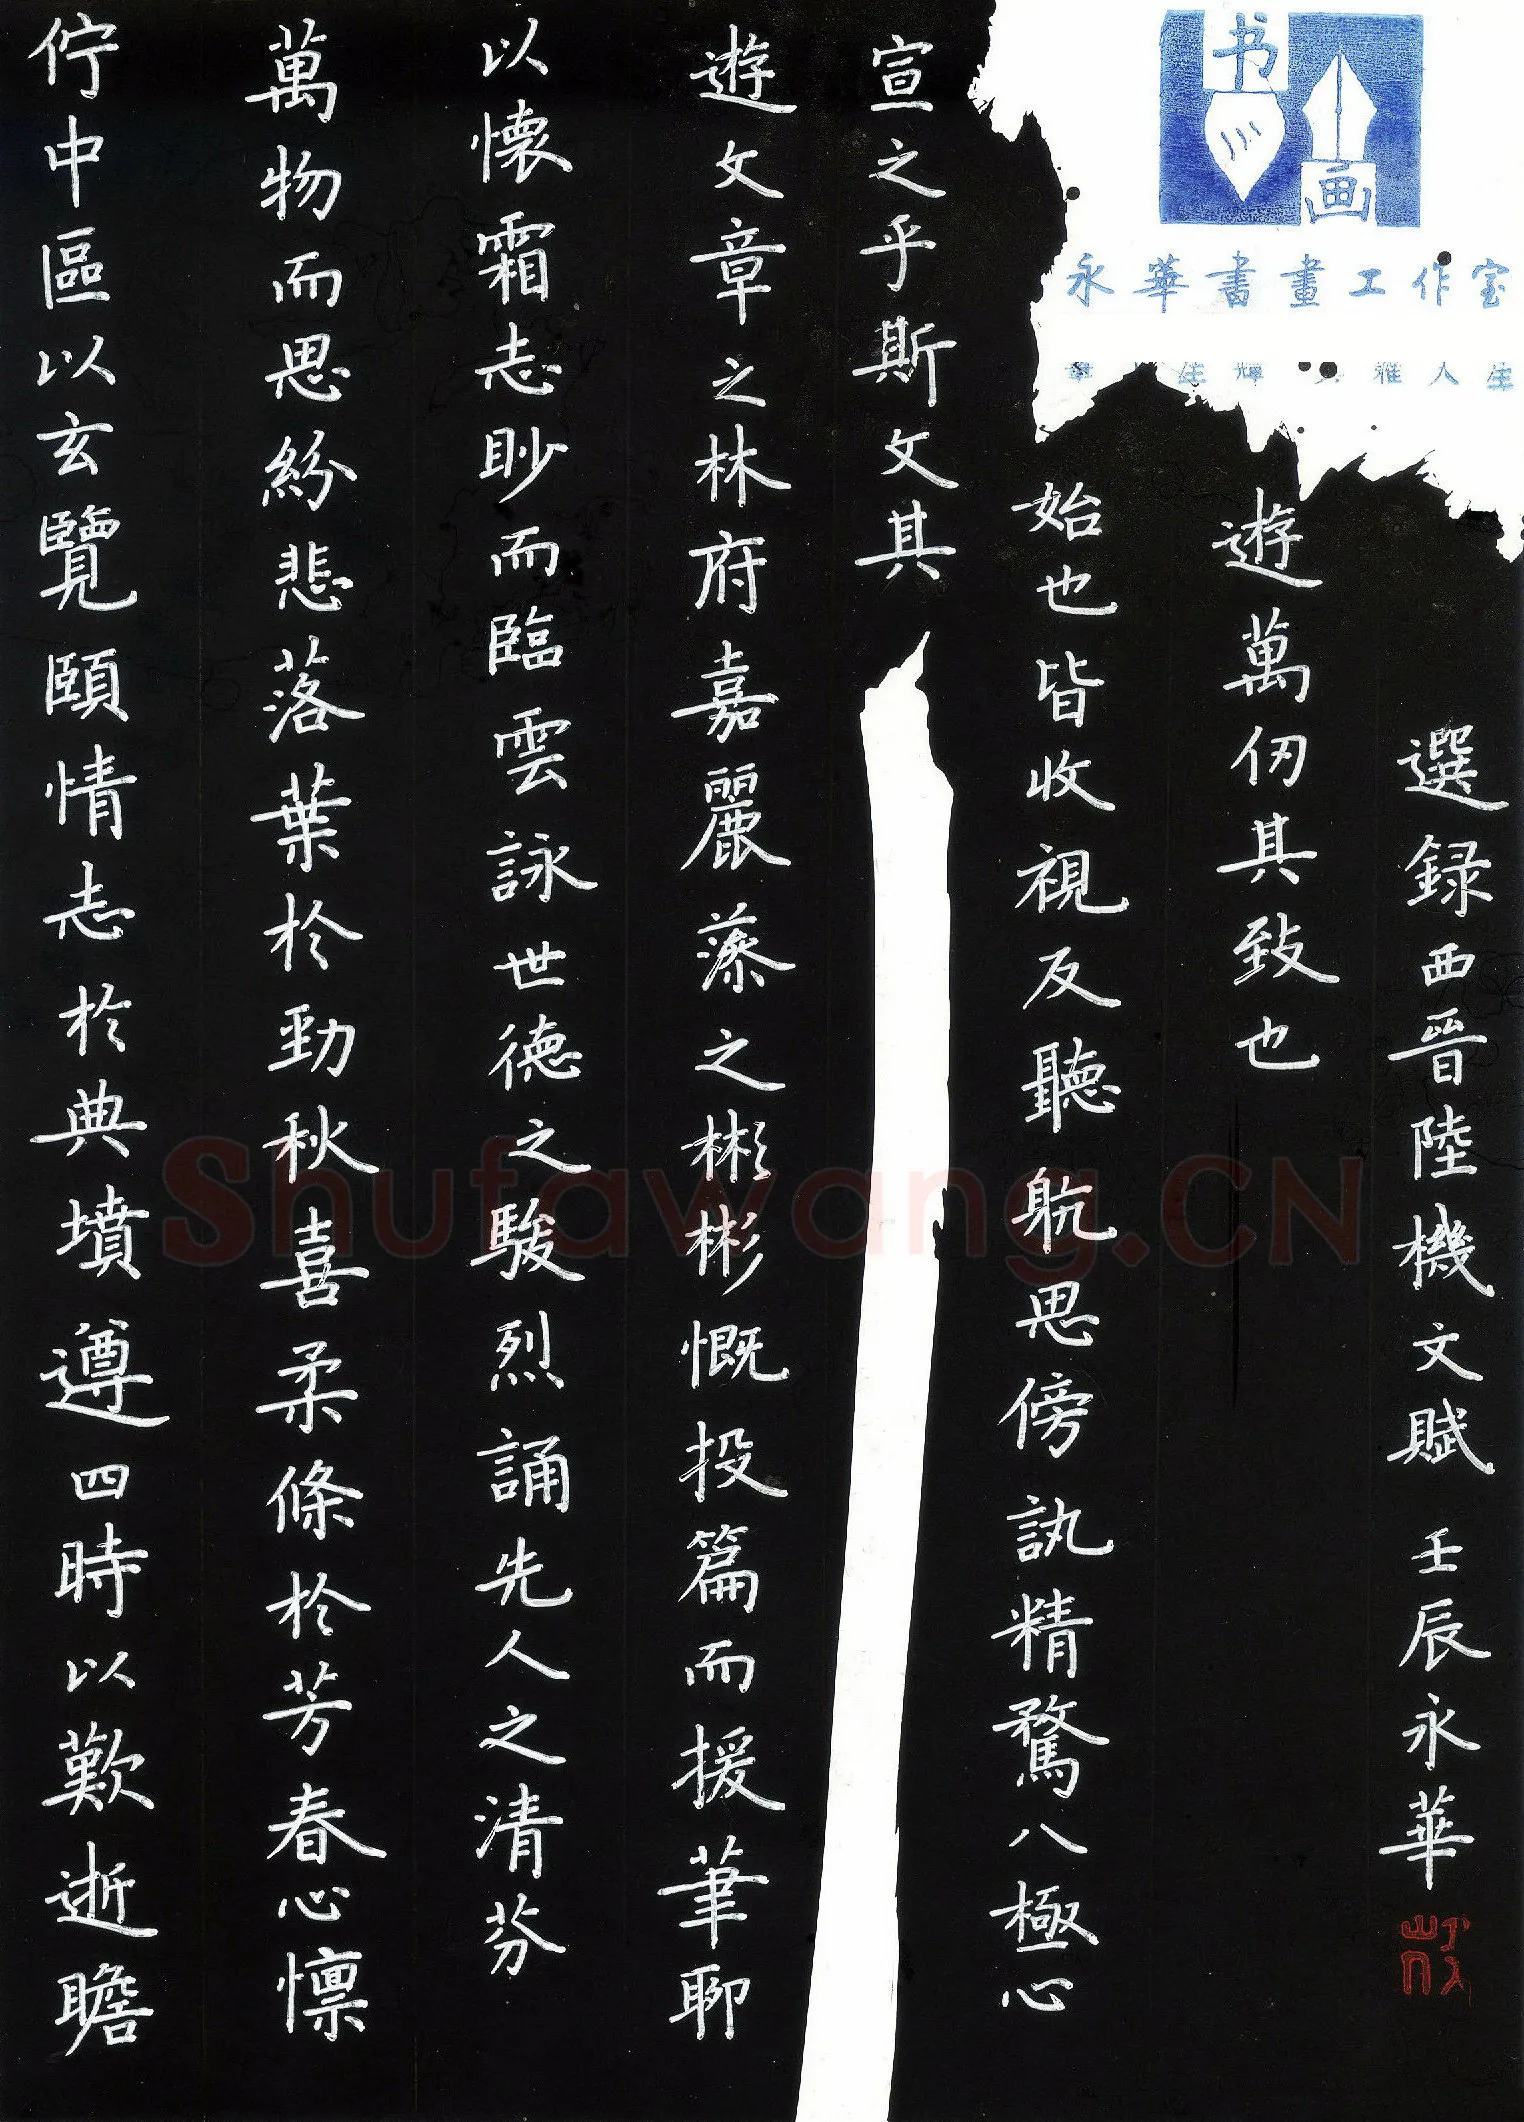 佇中區以玄覽頤情志於典墳遵四時以歎逝瞻
萬物而思紛悲落葉於勁秋喜柔條於芳春心懍
以懷霜志眇而臨雲詠世德之駿烈誦先人之清芬
遊文章之林府嘉麗藻之彬彬慨投篇而援筆聊
宣之乎斯文其
始也皆收視反聽躭思傍訊精騖八極心
遊萬仞其致也
選録西晉陸機文賦 壬辰永華
书画
永華書畫工作室
Shufawang.CN